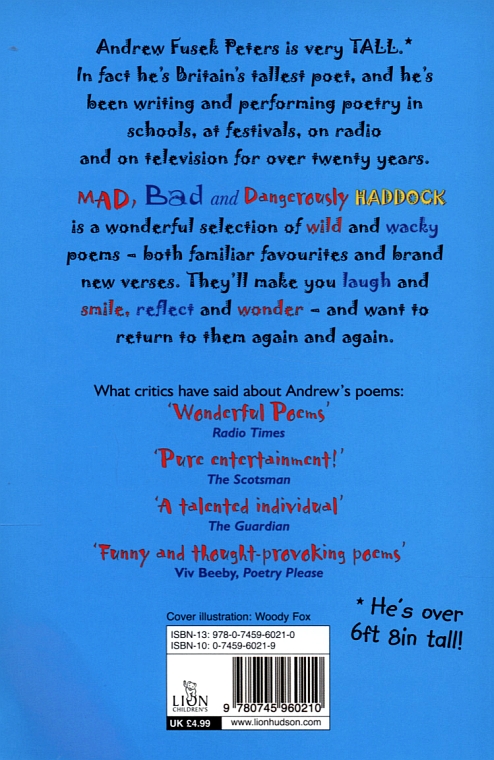 Andrew Fusek Peters is very TALL.*
In fact he's Britain's tallest poet, and he's
been writing and performing poetry in
schools, at festivals, on radio
and on television for over twenty years.
MAD, Bad and Dangerously HADDOCK
is a wonderful selection of wild and wacky
poems – both familiar favourites and brand
new verses. They'll make you laugh and
smile, reflect and wonder – and want to
return to them again and again.
What critics have said about Andrew's poems:
'Wonderful Poems'
Radio Times
'Pure entertainment!'
The Scotsman
'A talented individual'
The Guardian
'Funny and thought-provoking poems'
Viv Beeby, Poetry Please
* He's over
6ft 8in tall!
Cover illustration: Woody Fox
ISBN-13: 978-0-7459-6021-0
ISBN-10: 0-7459-6021-9
LION
CHILDREN'S
9 780745 960210
UK £4.99
www.lionhudson.com